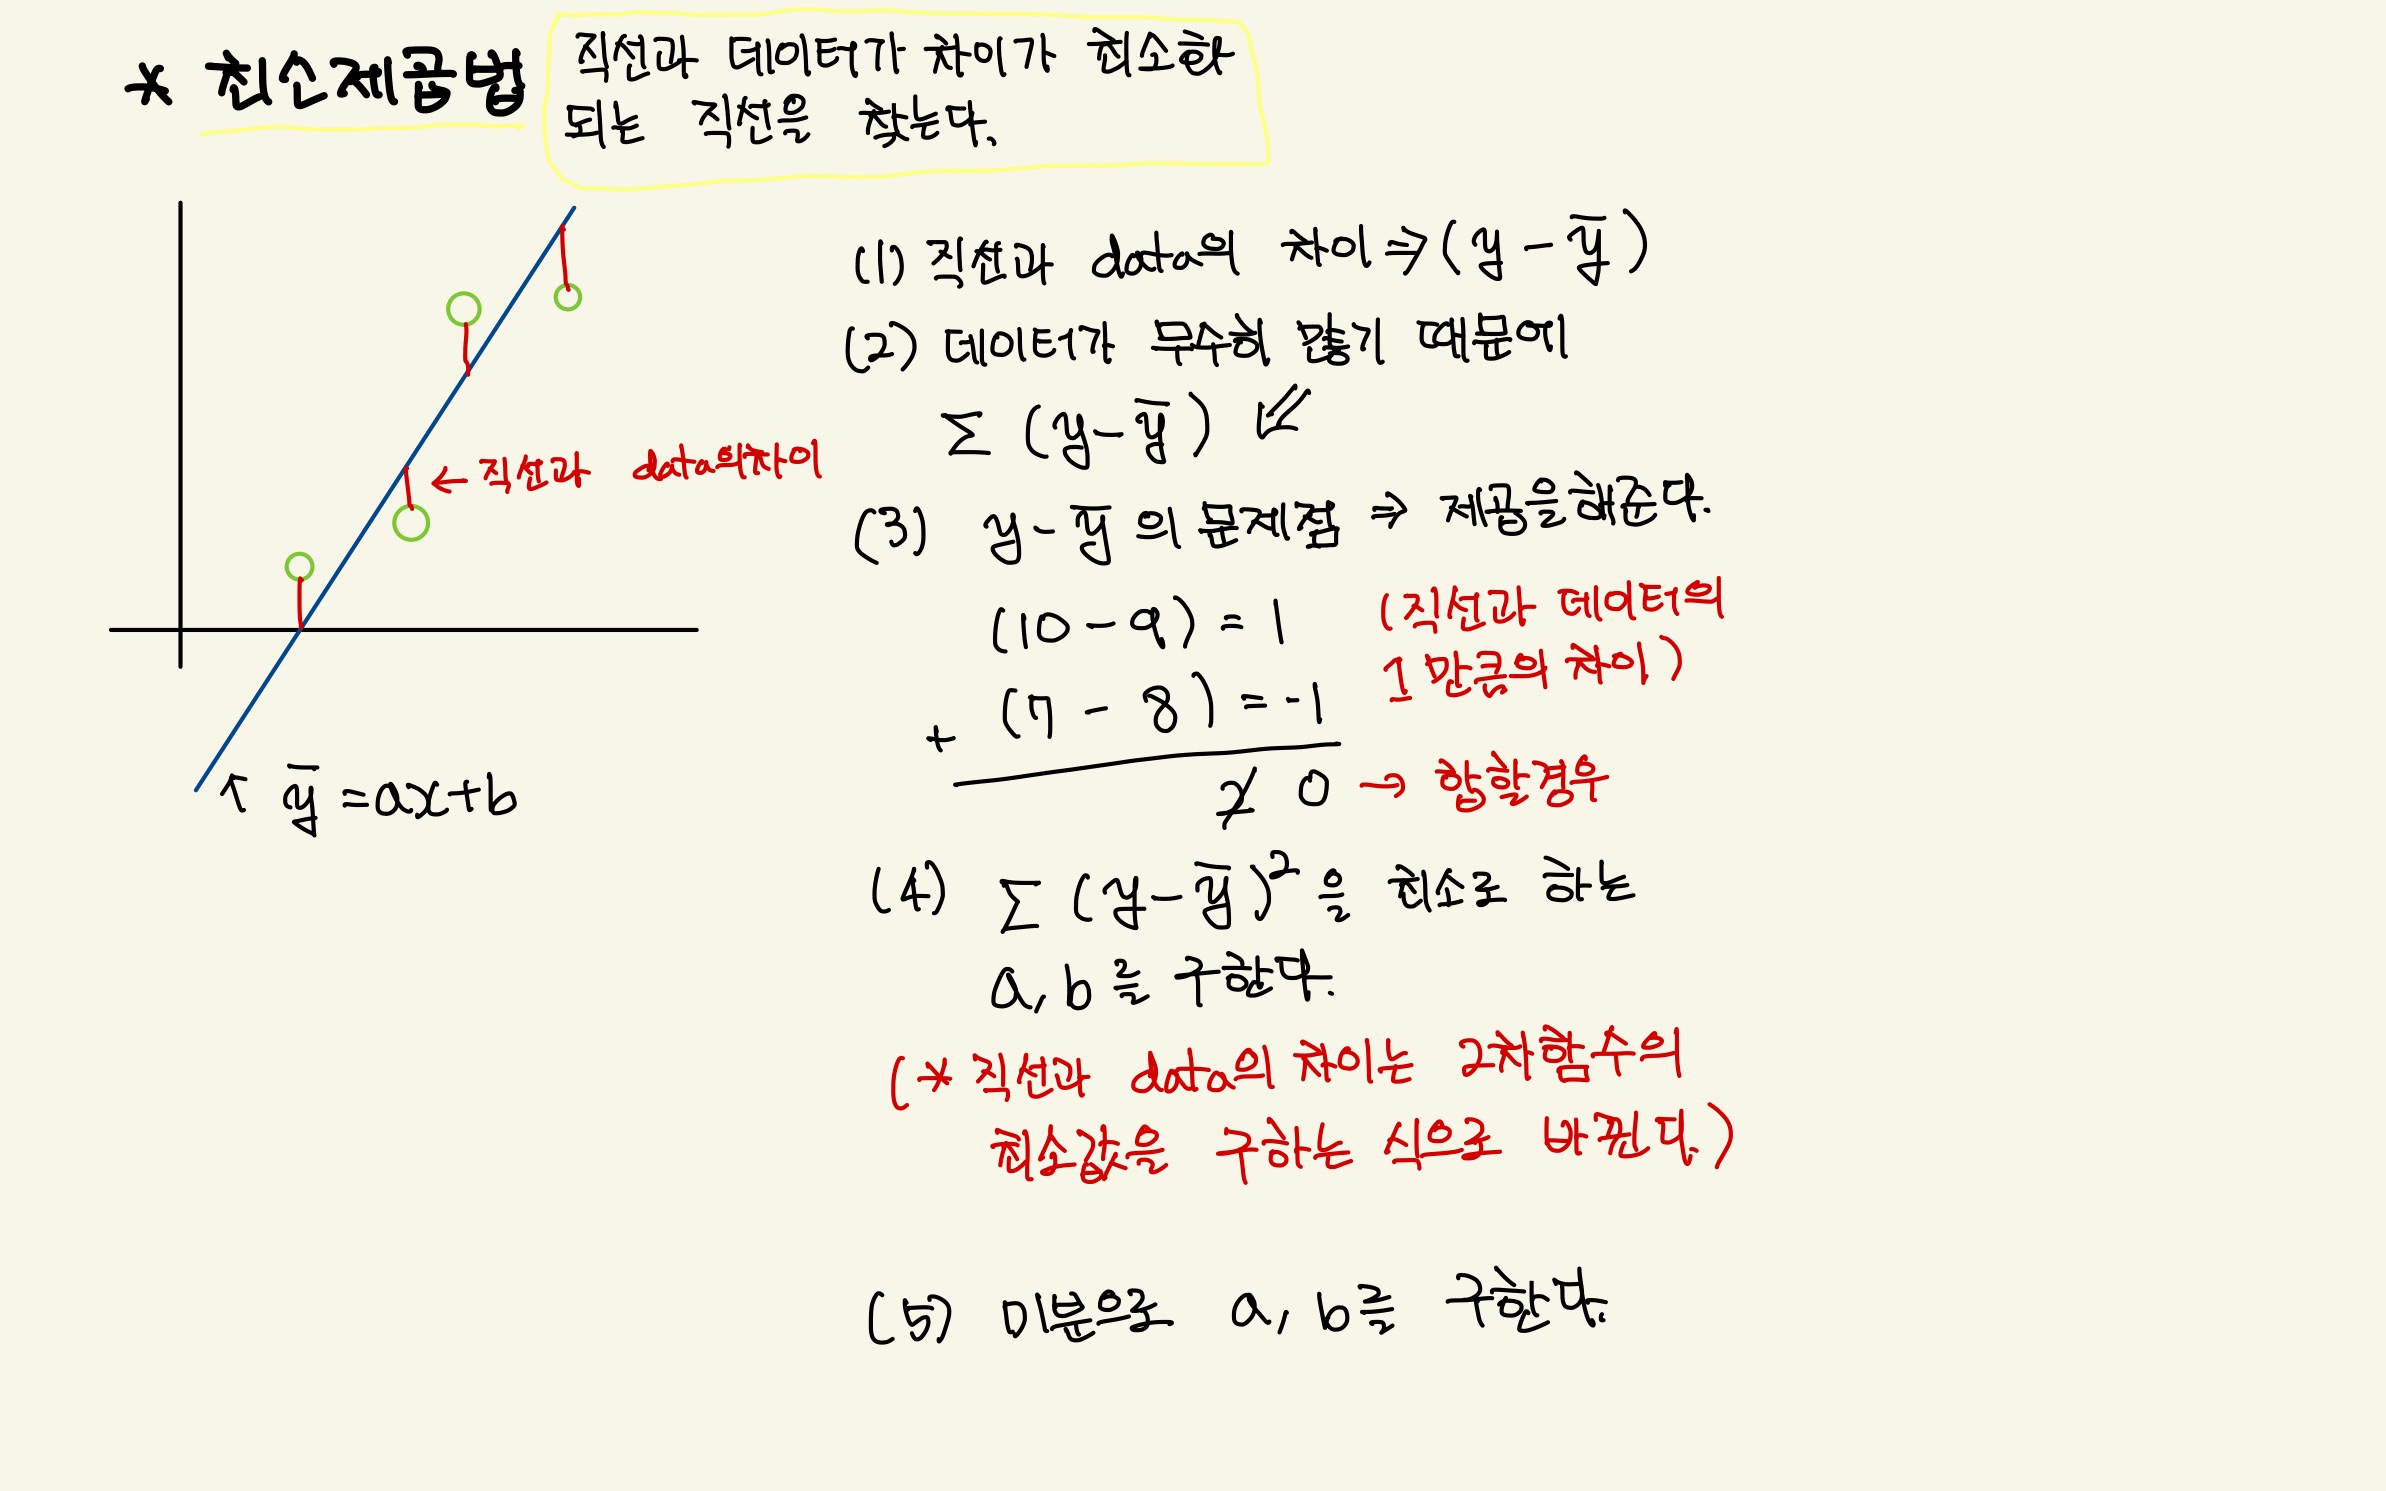 * 최소제곱법
직선과 데이터가 차이가 최소화
되는 직선을 찾는다.
← 직선과 data의차이
↑ y̅ = ax+b
(1) 직선과 data의 차이 ⇒ (y - y̅)
(2) 데이터가 무수히 많기 때문에
∑ (y - y̅) ⇙
(3) y - y̅ 의 문제점 ⇒ 제곱을해준다.
(10 - 9) = 1
(직선과 데이터의
1 만큼의 차이)
+ (7 - 8) = -1
0 → 합할경우
(4) ∑ (y - y̅)² 을 최소로 하는
a, b 를 구한다.
(* 직선과 data의 차이는 2차함수의
최소값을 구하는 식으로 바뀐다.)
(5) 미분으로 a, b를 구한다.